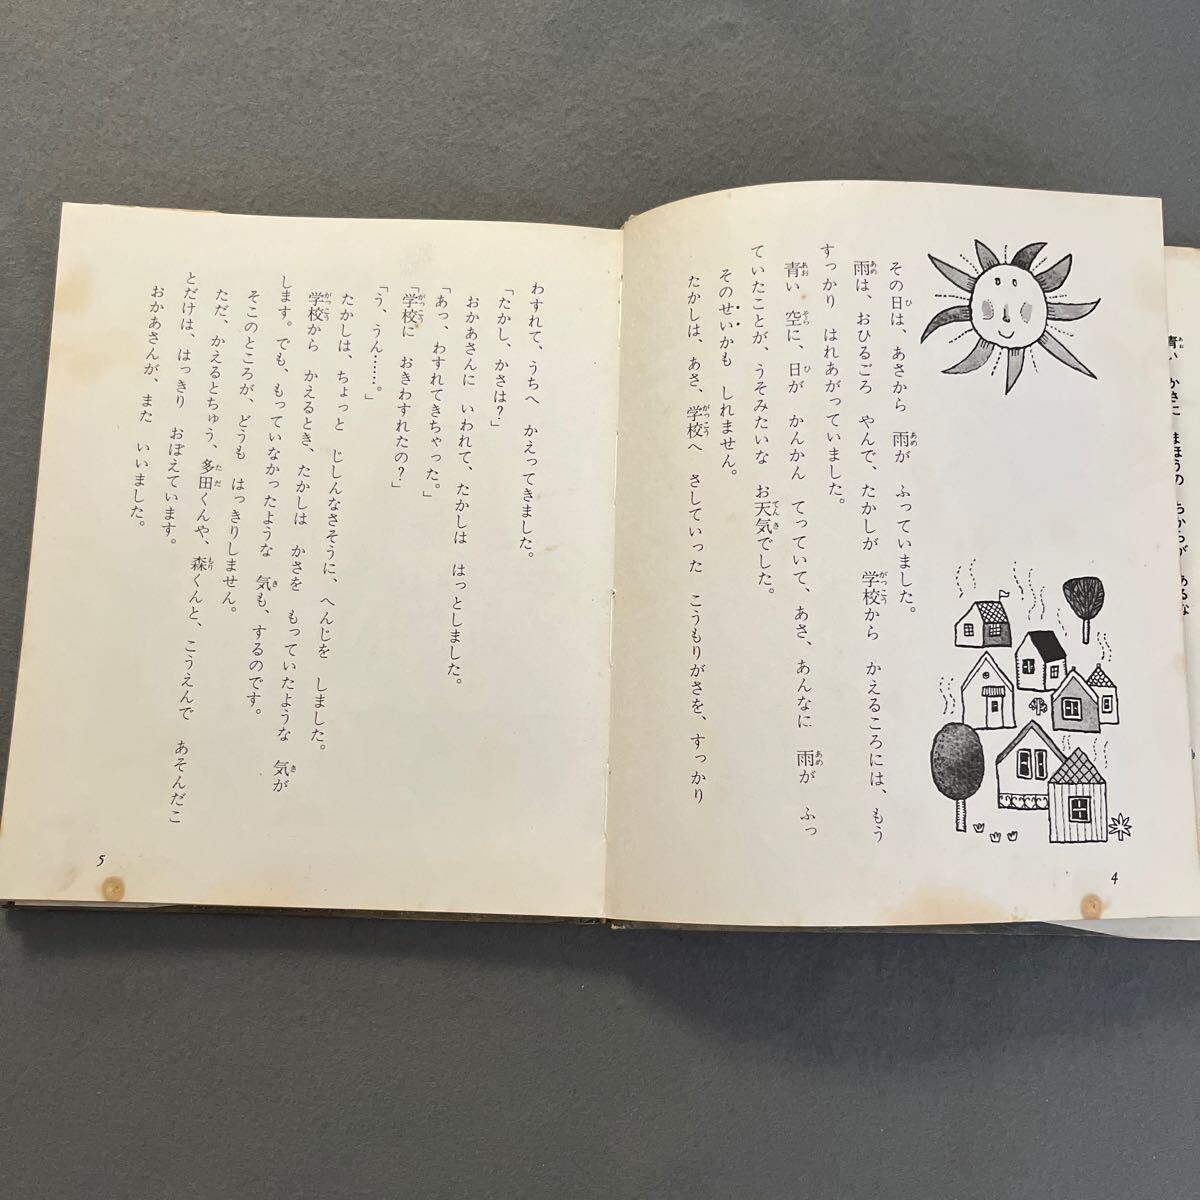 青い かさに まほうの ちからが あるな
その日は、あさから 雨が ふっていました。
雨は、おひるごろ やんで、たかしが 学校から かえるころには、もう
すっかり はれあがっていました。
青い 空に、日が かんかん てっていて、あさ、あんなに 雨が ふっ
ていたことが、うそみたいな お天気でした。
そのせいかも しれません。
たかしは、あさ、学校へ さしていった こうもりがさを、すっかり
4
わすれて、うちへ かえってきました。
「たかし、かさは?」
おかあさんに いわれて、たかしは はっとしました。
「あっ、わすれてきちゃった。」
「学校に おきわすれたの?」
「う、うん……。」
たかしは、ちょっと じしんなさそうに、へんじを しました。
学校から かえるとき、たかしは かさを もっていたような 気が
します。でも、もっていなかったような 気も、するのです。
そこのところが、どうも はっきりしません。
ただ、かえるとちゅう、多田くんや、森くんと、こうえんで あそんだこ
とだけは、はっきり おぼえています。
おかあさんが、また いいました。
5